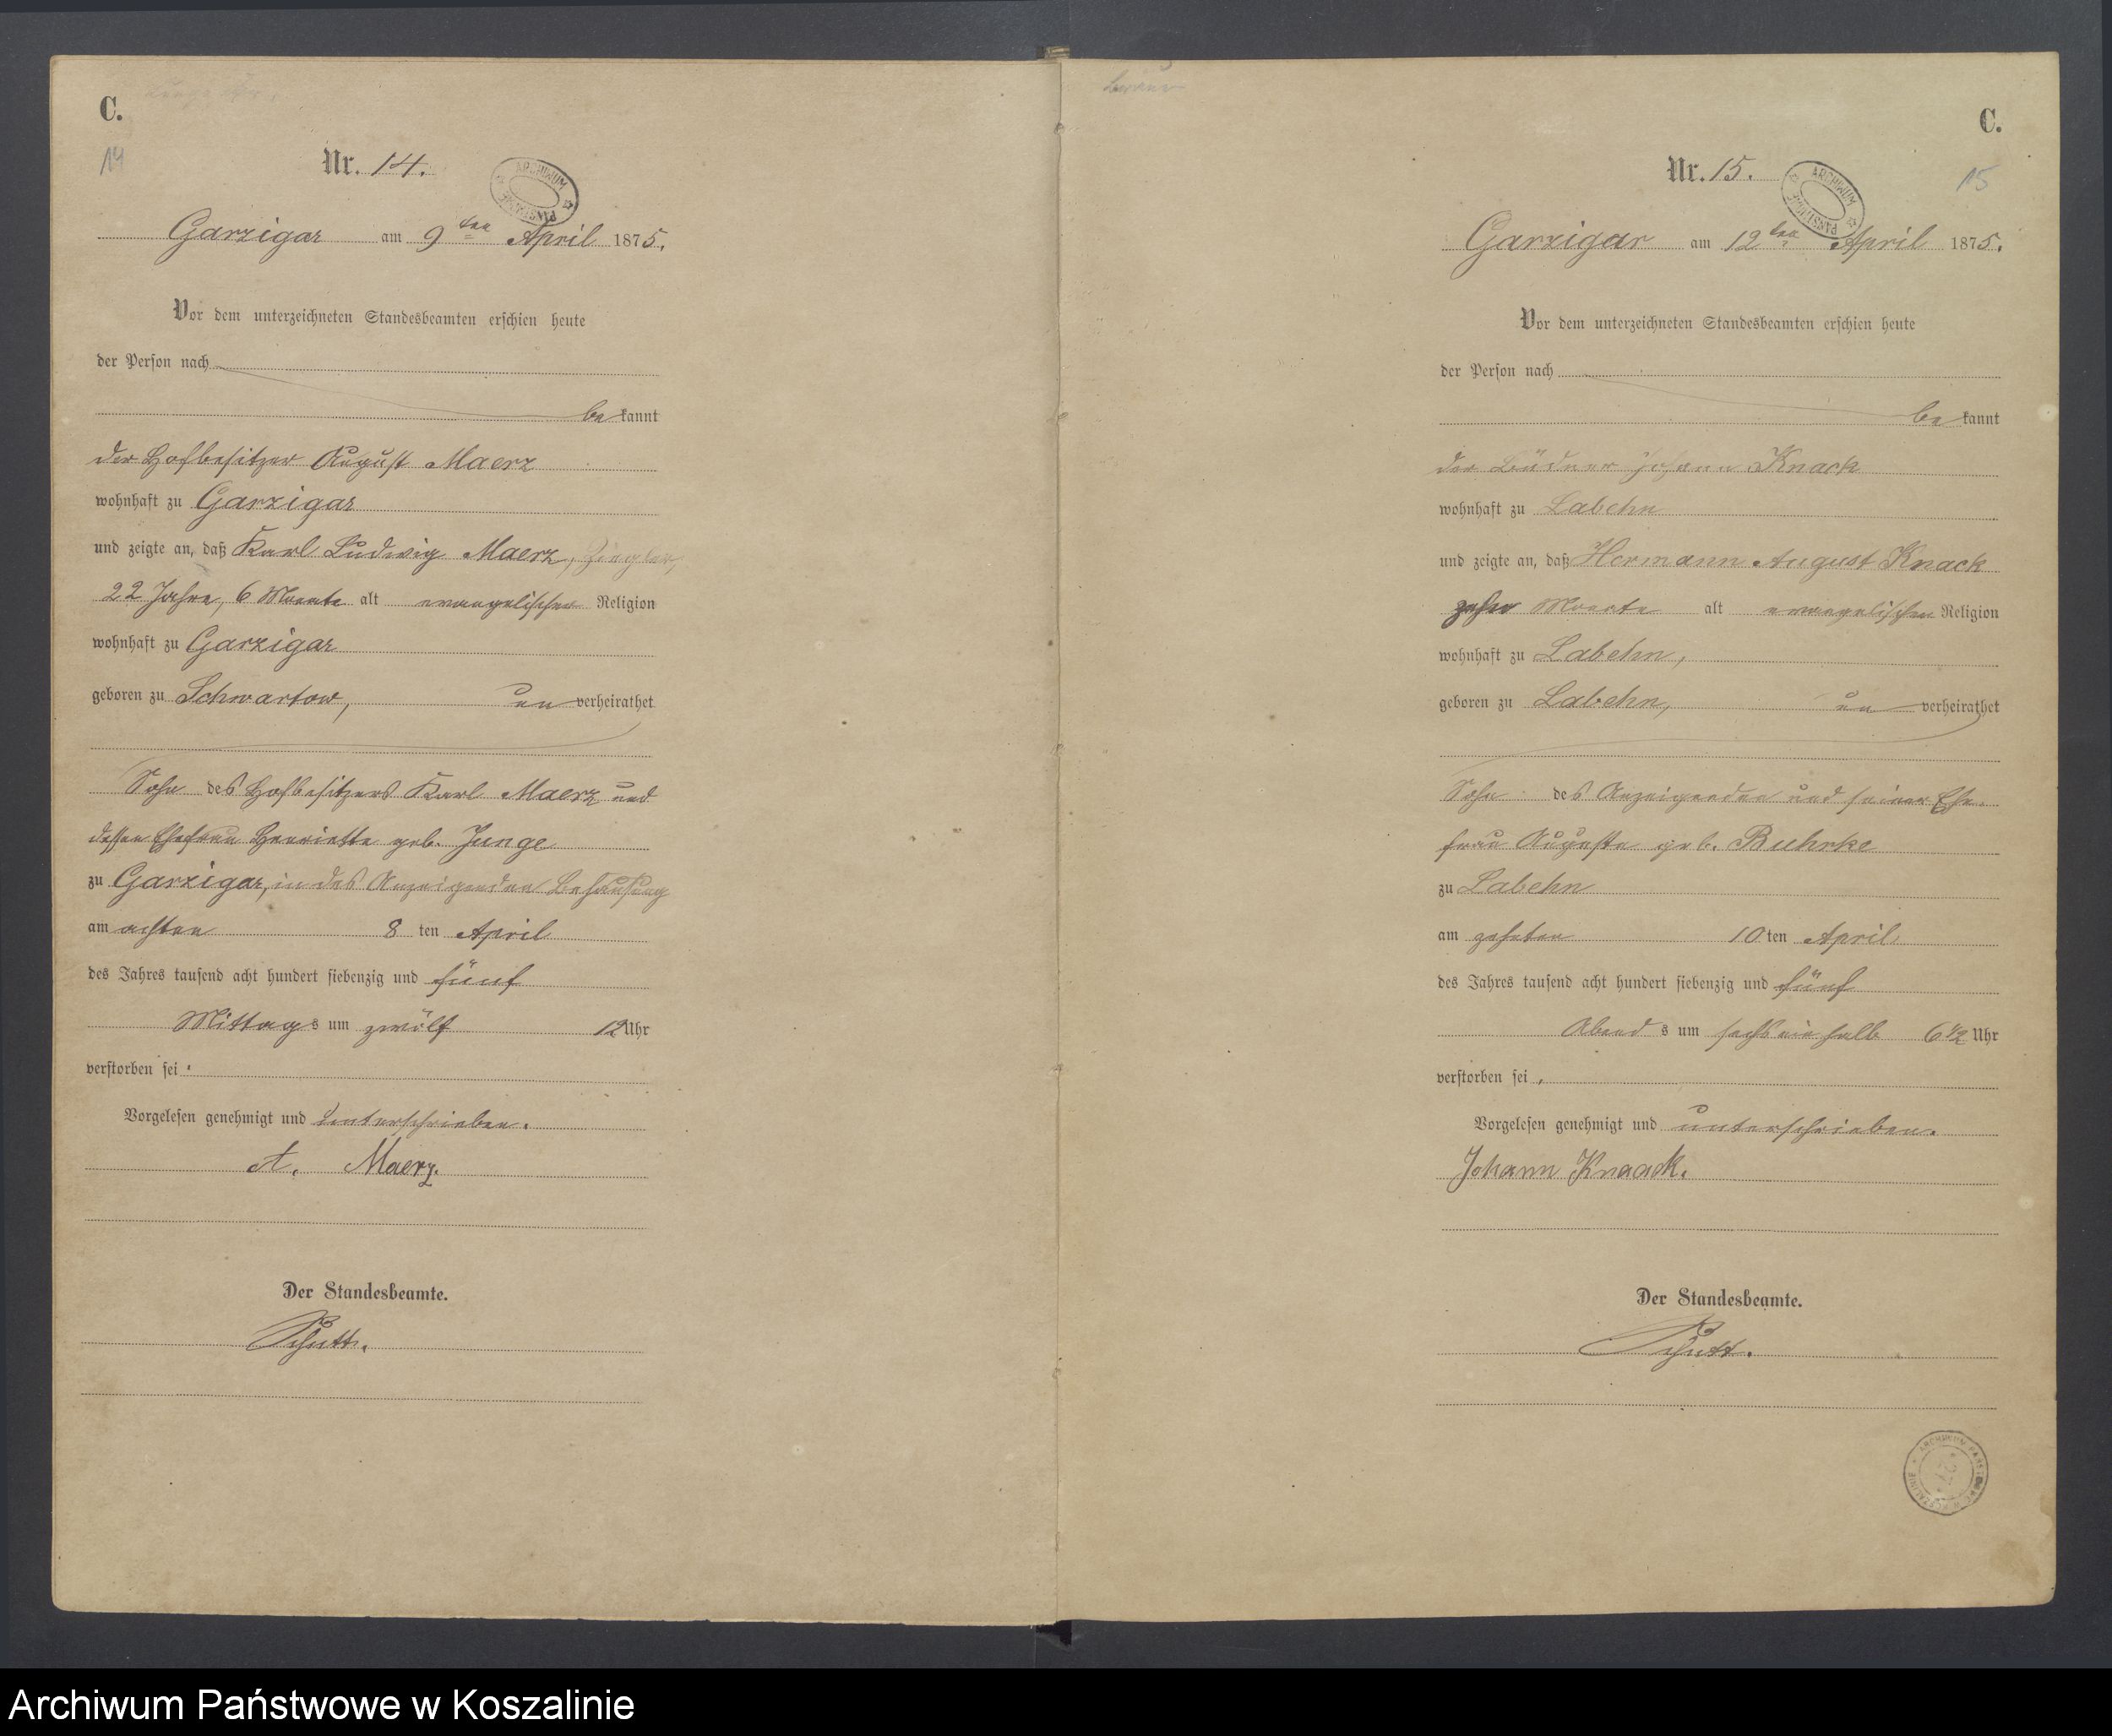 C.
14
Nr. 14.
ARCHIWUM PAŃSTWOWE
Garzigar am 9ten April 1875.
Vor dem unterzeichneten Standesbeamten erschien heute
der Person nach
bekannt
der Hofbesitzer August Maerz
wohnhaft zu Garzigar
und zeigte an, daß Karl Ludwig Maerz, Ziegler,
22 Jahre, 6 Monate alt evangelischer Religion
wohnhaft zu Garzigar
geboren zu Schwartow, un verheirathet
Sohn des Hofbesitzers Karl Maerz und
dessen Ehefrau Henriette geb. Junge
zu Garzigar, in des Anzeigenden Behausung
am achten 8 ten April
des Jahres tausend acht hundert siebenzig und fünf
Mittags um zwölf 12 Uhr
verstorben sei.
Vorgelesen genehmigt und unterschrieben.
A. Maerz.
Der Standesbeamte.
Schutt.
C.
15
Nr. 15.
ARCHIWUM PAŃSTWOWE
Garzigar am 12ten April 1875.
Vor dem unterzeichneten Standesbeamten erschien heute
der Person nach
bekannt
der Büdner Johann Knack
wohnhaft zu Labehn
und zeigte an, daß Hermann August Knack
zehn Monate alt evangelischer Religion
wohnhaft zu Labehn,
geboren zu Labehn, un verheirathet
Sohn des Anzeigenden und seiner Ehe-
frau Auguste geb. Buhrke
zu Labehn
am zehnten 10 ten April
des Jahres tausend acht hundert siebenzig und fünf
Abends um sechs ein halb 6 1/2 Uhr
verstorben sei,
Vorgelesen genehmigt und unterschrieben.
Johann Knaack.
Der Standesbeamte.
Schutt.
Archiwum Państwowe w Koszalinie